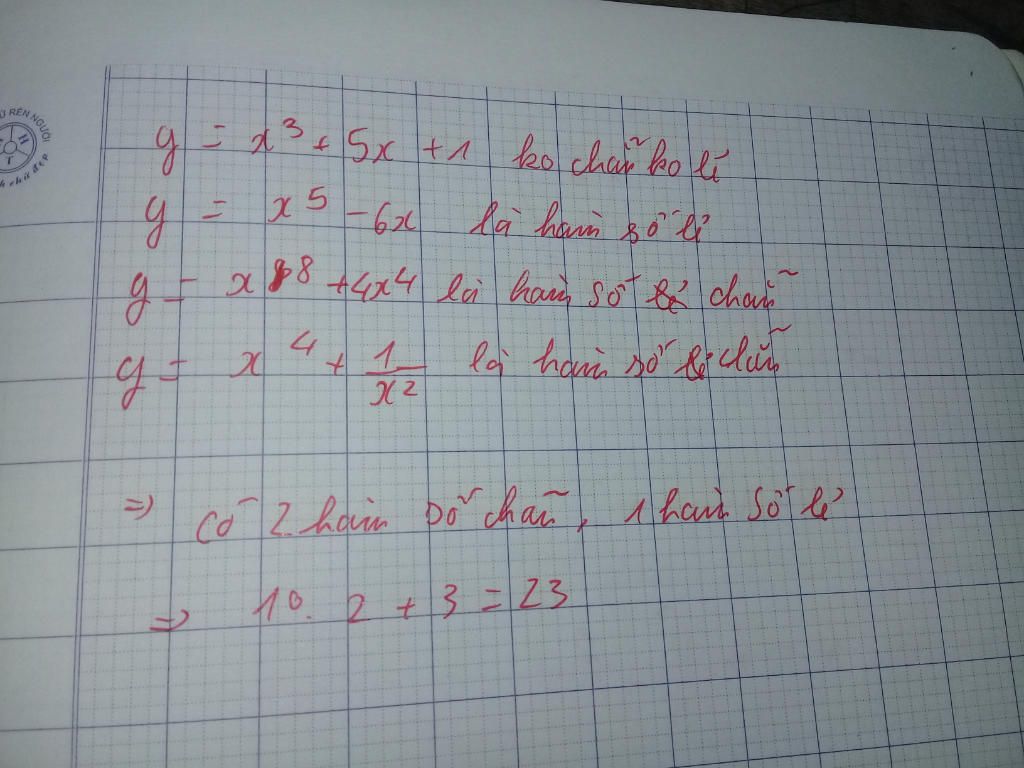 Ữ RÈN NGƯỜI
y = x³ + 5x + 1 ko chẵn ko lẻ
y = x⁵ - 6x là hàm số lẻ
y = x⁸ + 4x⁴ là hàm số chẵn
y = x⁴ + 1/x² là hàm số chẵn
=> Có 2 hàm số chẵn, 1 hàm số lẻ
=> 10. 2 + 3 = 23